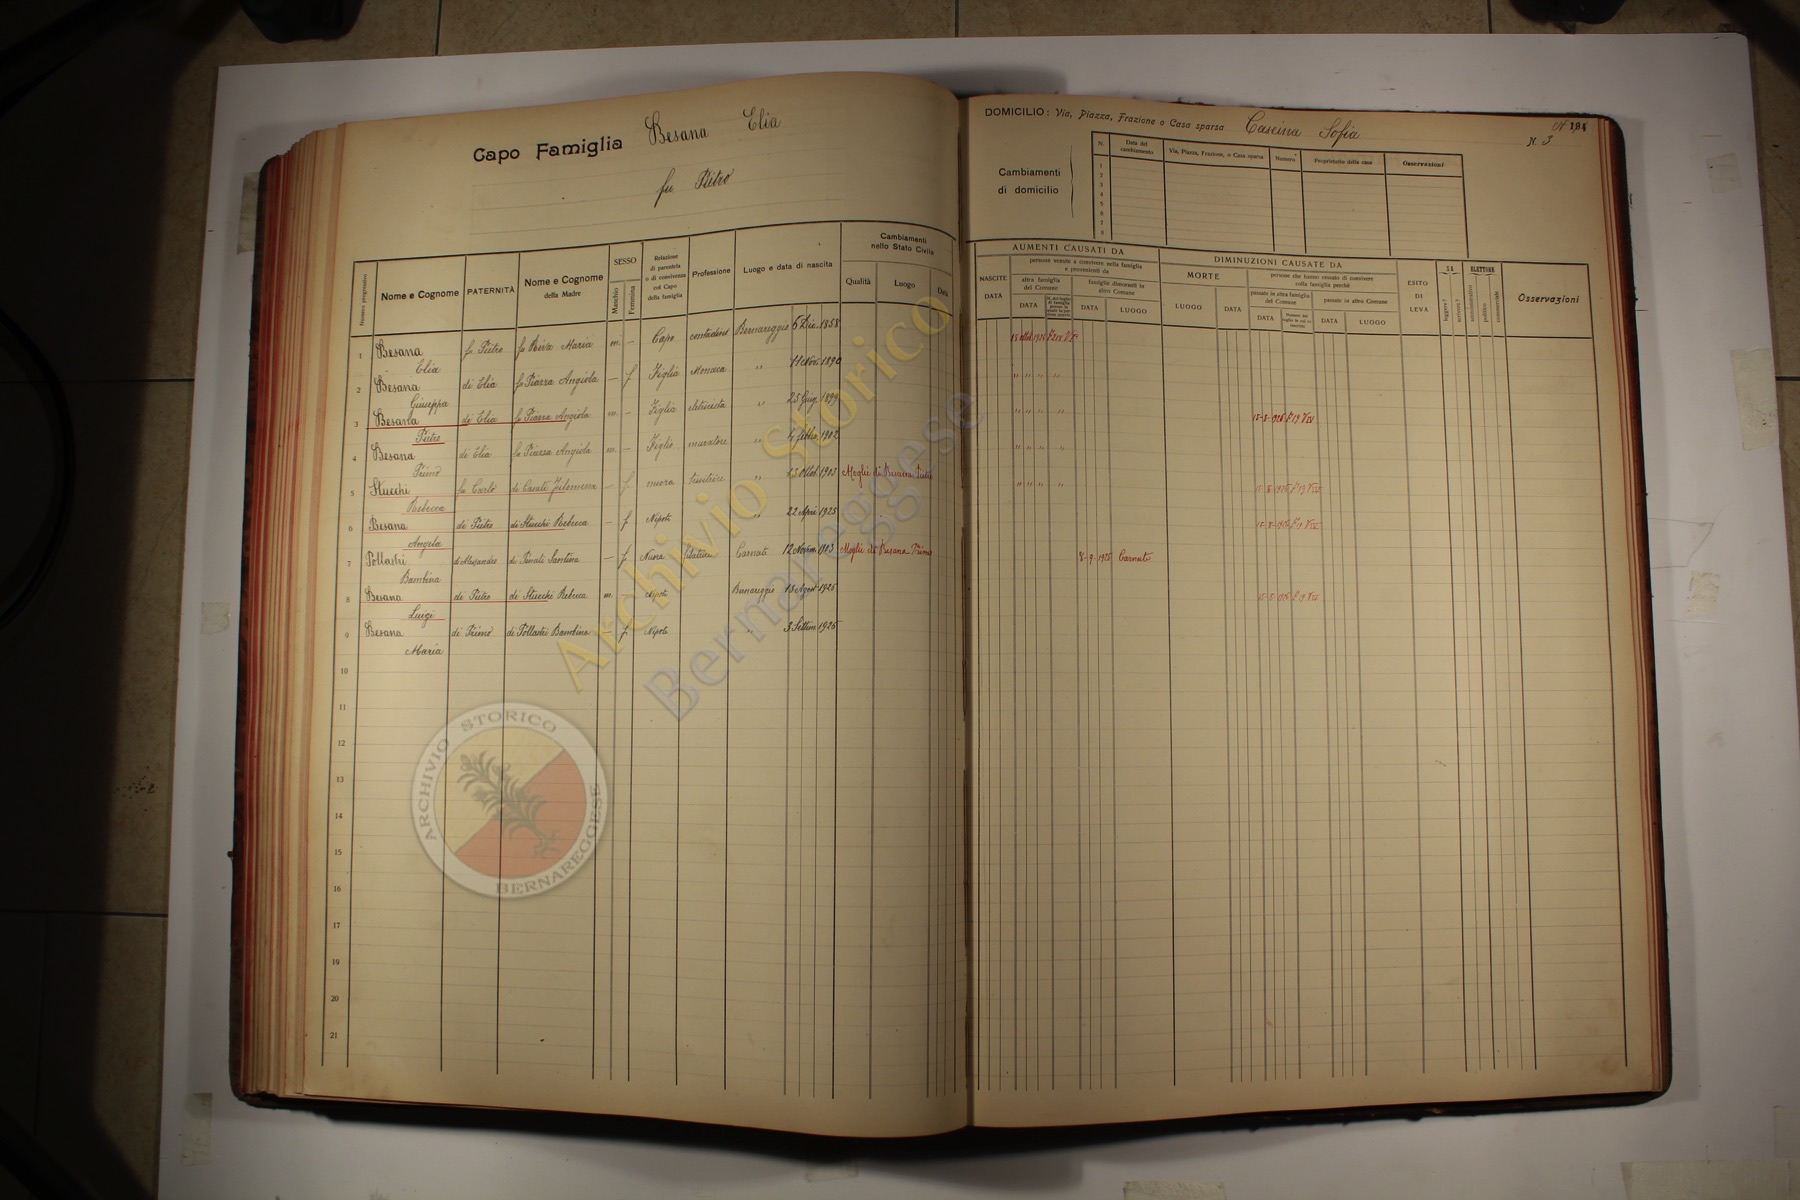 Capo Famiglia Besana Elia
fu Pietro
Numero progressivo
Nome e Cognome
PATERNITÀ
Nome e Cognome della Madre
SESSO
Maschio
Femmina
Relazione di parentela o di convivenza col Capo della famiglia
Professione
Luogo e data di nascita
Cambiamenti nello Stato Civile
Qualità
Luogo
Data
1 Besana Elia fu Pietro fu Riva Maria m. – Capo contadino Bernareggio 6 Dic. 1858
2 Besana Giuseppa di Elia fu Piazza Angiola – f Figlia Monaca " 11 Nov. 1890
3 Besana Pietro di Elia fu Piazza Angiola m. – Figlio " 23 Giug. 1899
4 Besana Primo di Elia fu Piazza Angiola m. – Figlio muratore " 4 febbr. 1902
5 Stucchi Rebecca fu Carlo di Casati Filomena – f nuora tessitrice " 23 Ottob. 1903 Moglie di Besana Pietro
6 Besana Angela di Pietro di Stucchi Rebecca – f Nipote " 22 April 1925
7 Pollastri Bambina di Alessandro di Penati Santina – f Nuora Carnate 12 Novem. 1903 Moglie di Besana Primo
8 Besana Luigi di Pietro di Stucchi Rebecca m. – Nipote Bernareggio 13 Agost 1925
9 Besana Maria di Primo di Pollastri Bambina – f Nipote " 3 Settem 1925
10
11
12
13
14
15
16
17
18
19
20
21
DOMICILIO: Via, Piazza, Frazione o Casa sparsa Cascina Sofia
N 194
N. 3
Cambiamenti di domicilio
N.
Data del cambiamento
Via, Piazza, Frazione, o Casa sparsa
Numero
Proprietario della casa
Osservazioni
1
2
3
4
5
6
7
8
AUMENTI CAUSATI DA
NASCITE
DATA
persone venute a convivere nella famiglia e provenienti da
altra famiglia del Comune
DATA
famiglie dimoranti in altro Comune
DATA
LUOGO
DIMINUZIONI CAUSATE DA
MORTE
LUOGO
DATA
persone che hanno cessato di convivere colla famiglia perchè
passate in altra famiglia del Comune
DATA
passate in altro Comune
DATA
LUOGO
ESITO DI LEVA
SA
leggere?
scrivere?
ELETTORE
amministrativo
politico
commerciale
Osservazioni
" " " "
" " " "
" " " "
" " " "
8-9-1925 Carnate
Archivio storico
Bernareggese
ARCHIVIO STORICO
BERNAREGGESE